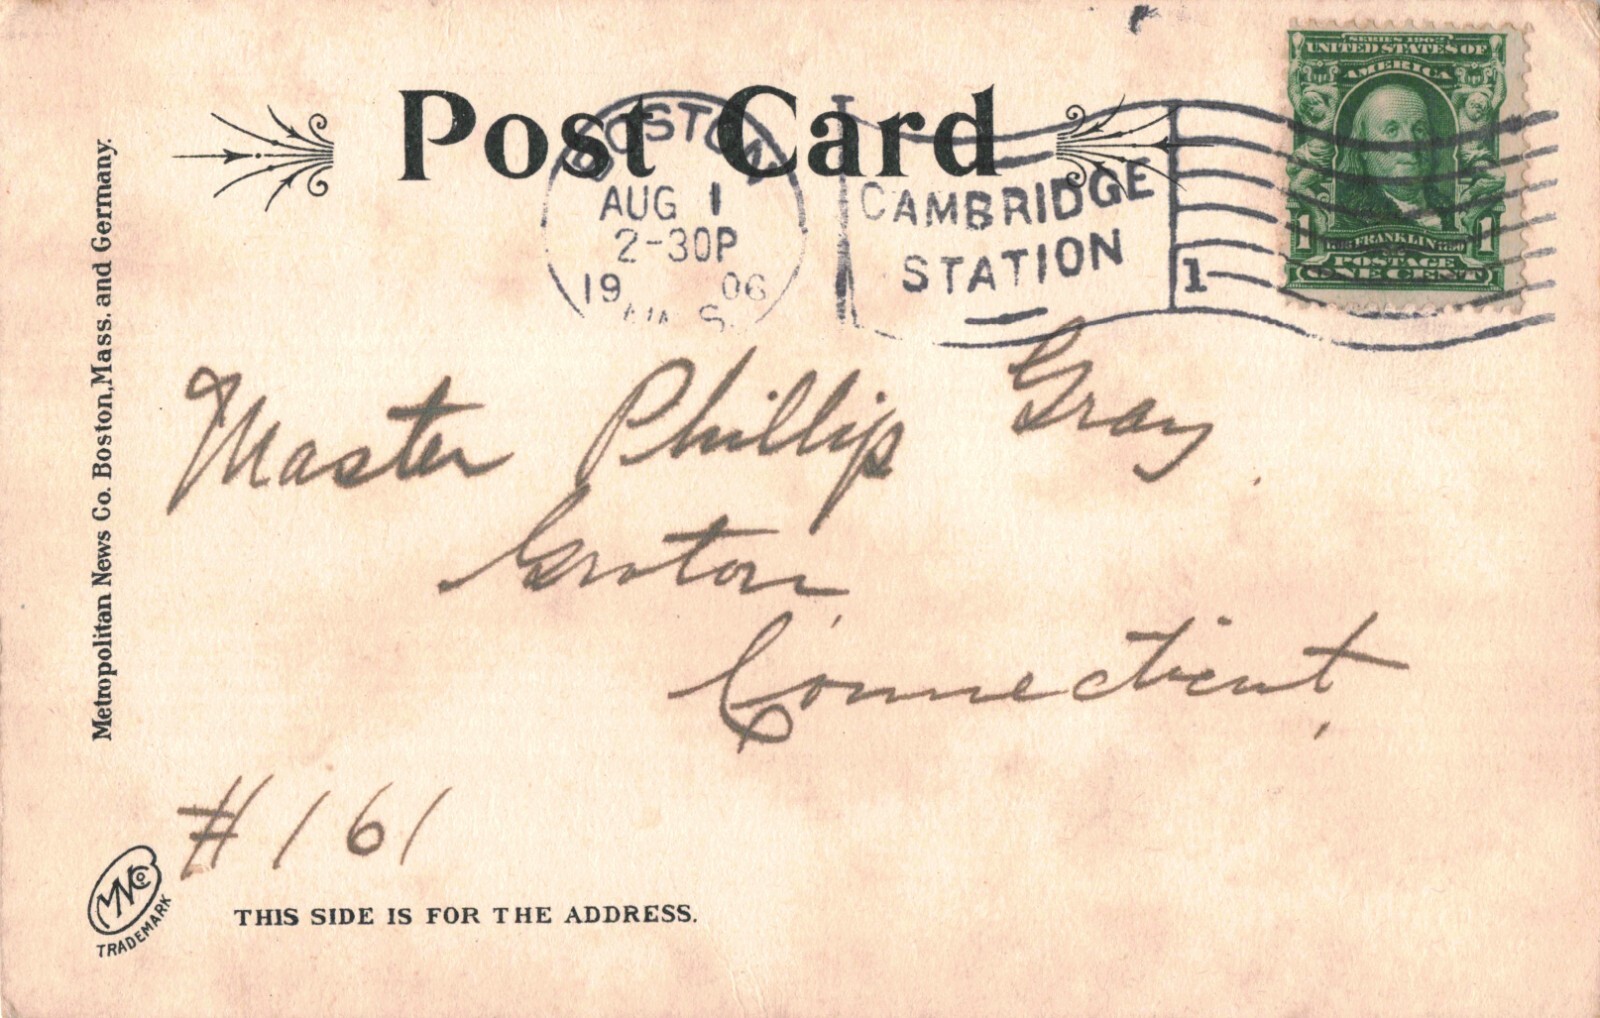 Post Card
BOSTON
AUG 1
2-30P
19 06
MASS.
CAMBRIDGE
STATION
1
SERIES 1902
UNITED STATES OF
AMERICA
1 FRANKLIN 1
POSTAGE
ONE CENT
Metropolitan News Co. Boston, Mass. and Germany.
Master Phillip Gray
Groton,
Connecticut,
#161
MNCo
TRADEMARK
THIS SIDE IS FOR THE ADDRESS.